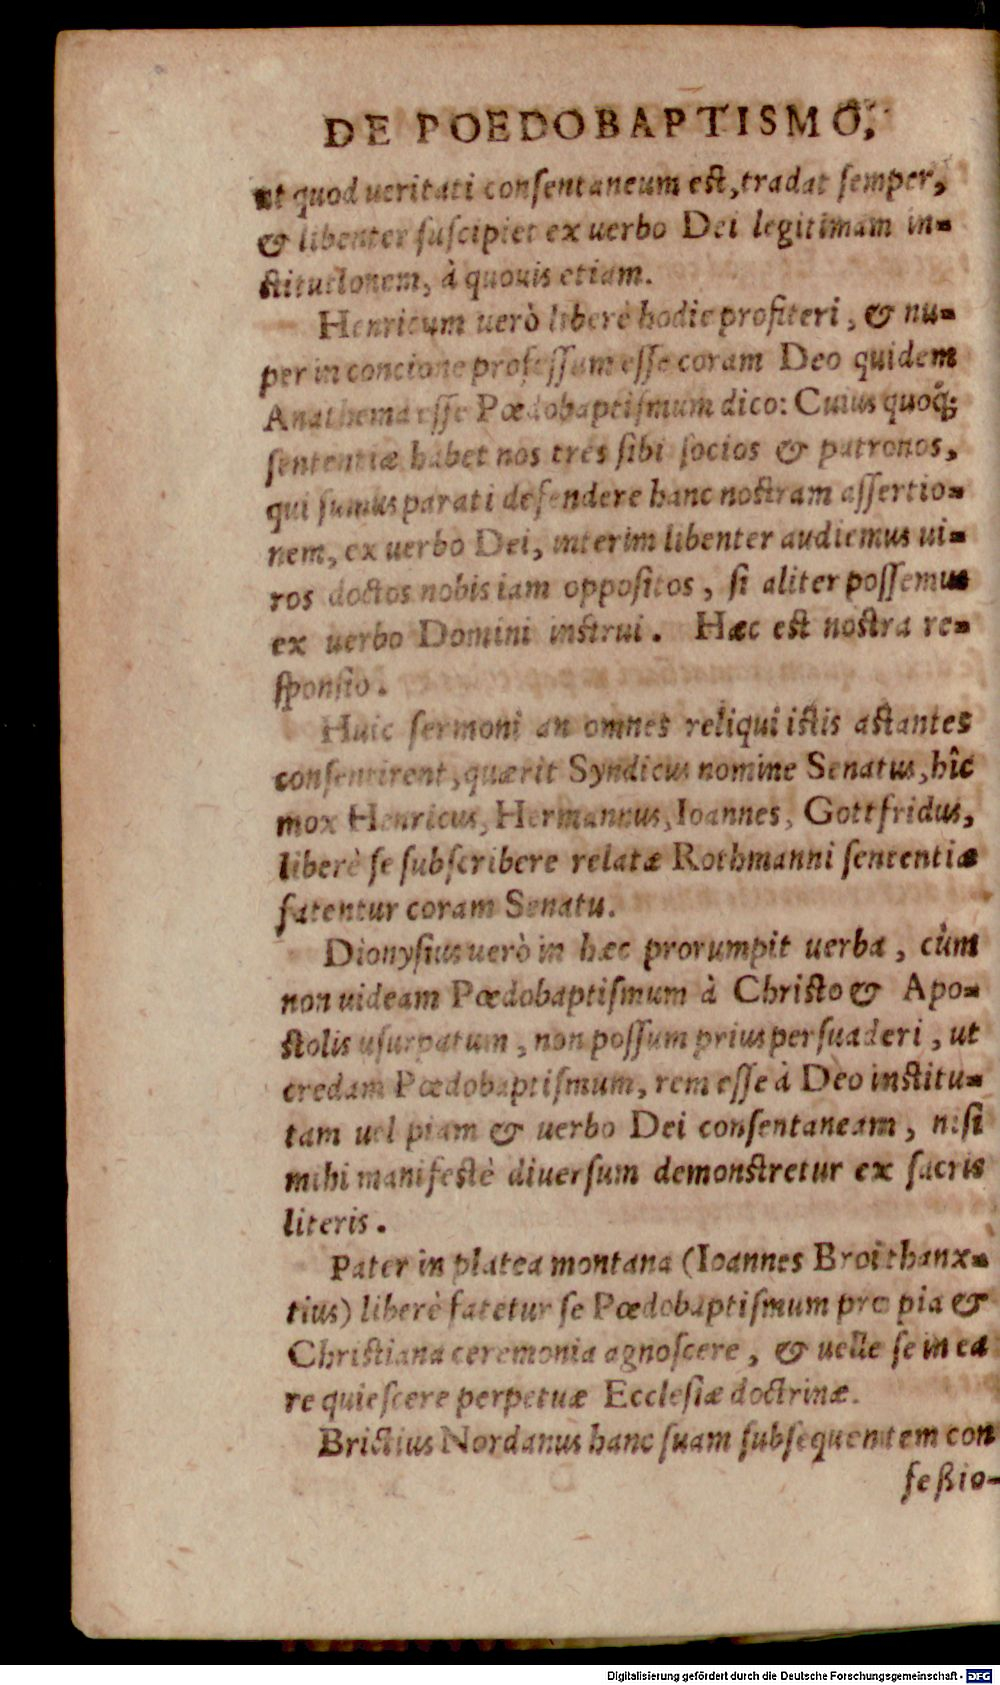 DE POEDOBAPTISMO,
ut quod ueritati consentaneum est, tradat semper,
& libenter suscipiet ex uerbo Dei legitimam in=
stitutionem, à quouis etiam.
Henricum uerò liberè hodie profiteri, & nu=
per in concione professum esse coram Deo quidem
Anathema esse Pœdobaptismum dico: Cuius quoq;
sententiæ habet nos tres sibi socios & patronos,
qui sumus parati defendere hanc nostram assertio=
nem, ex uerbo Dei, interim libenter audiemus ui=
ros doctos nobis iam oppositos, si aliter possemus
ex uerbo Domini instrui. Hæc est nostra re=
sponsio.
Huic sermoni an omnes reliqui istis astantes
consentirent, quærit Syndicus nomine Senatus, hîc
mox Henricus, Hermannus, Ioannes, Gottfridus,
liberè se subscribere relatæ Rothmanni sententiæ
fatentur coram Senatu.
Dionysius uerò in hæc prorumpit uerba, cùm
non uideam Pœdobaptismum à Christo & Apo=
stolis usurpatum, non possum prius persuaderi, ut
credam Pœdobaptismum, rem esse à Deo institu=
tam uel piam & uerbo Dei consentaneam, nisi
mihi manifestè diuersum demonstretur ex sacris
literis.
Pater in platea montana (Ioannes Broithanx=
tius) liberè fatetur se Pœdobaptismum pro pia &
Christiana ceremonia agnoscere, & uelle se in ea
re quiescere perpetuæ Ecclesiæ doctrinæ.
Brictius Nordanus hanc suam subsequentem con
feßio-
Digitalisierung gefördert durch die Deutsche Forschungsgemeinschaft - DFG